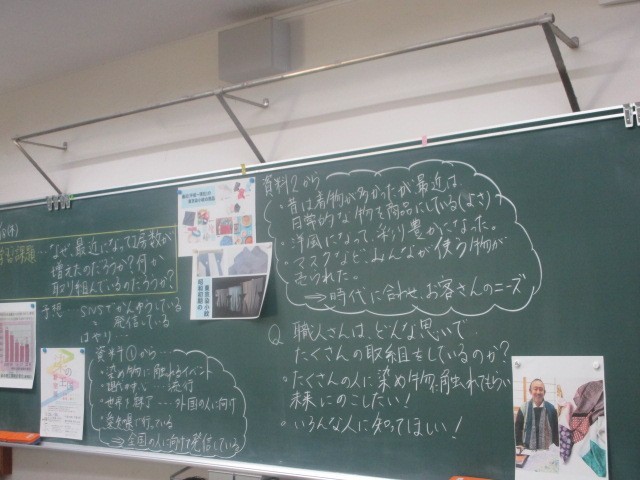 学習課題
なぜ、最近になって店数が
増えたのだろうか？何か
取り組んでいるのだろうか？
予想 SNSで
発信している
はやり…
資料①から…
・染め物に触れるイベント
流行
外国の人に向け
⇒全国の人に向けて発信している
資料2から
・昔は着物が多かったが最近は、
日常的な物を商品にしている(よさ)
・洋風になって、彩り豊かになった。
・マスクなど、みんなが使う物が
売られた。
⇒時代に合わせ、お客さんのニーズ
Q 職人さんは、どんな思いで、
たくさんの取組をしているのか？
・たくさんの人に染め物に触れてもらい
未来にのこしたい！
・いろんな人に知ってほしい！